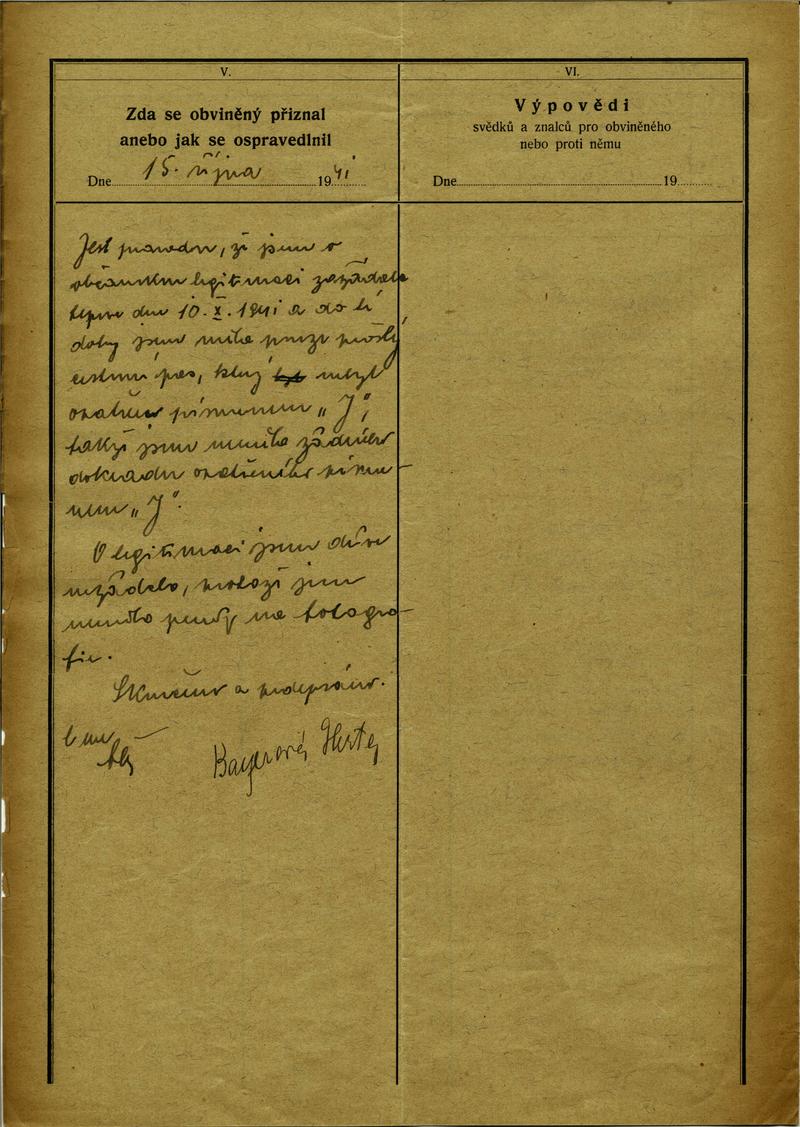 V.
Zda se obviněný přiznal
anebo jak se ospravedlnil
Dne 15. října 1941
Jest pravdou, že jsem o
občanskou legitimaci zažádala
teprve dne 10.X.1941 a do té
doby jsem měla pouze prošlý
cestovní pas, který byl nebyl
označen písmenem „J",
takže jsem neměla žádného
dokladu označeného písme-
nem „J".
O legitimaci jsem dříve
nežádala, protože jsem
neměla peněz na fotogra-
fie.
Skončeno a podepsáno.
Bayerová Herta
VI.
Výpovědi
svědků a znalců pro obviněného
nebo proti němu
Dne 19